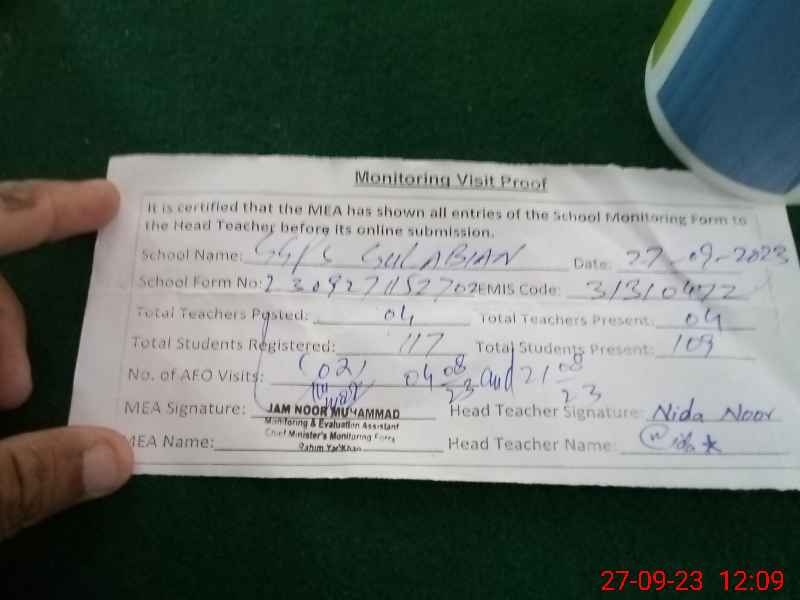 Monitoring Visit Proof
It is certified that the MEA has shown all entries of the School Monitoring Form to
the Head Teacher before its online submission.
School Name: GULABIAN Date: 27-09-2023
School Form No: EMIS Code: 31310472
Total Teachers Posted: 04 Total Teachers Present: 04
Total Students Registered: 117 Total Students Present: 109
No. of AEO Visits: (02) 04 08/23 and 21 08/23
MEA Signature: JAM NOOR MUHAMMAD Head Teacher Signature: Nida Noor
Monitoring & Evaluation Assistant
Chief Minister's Monitoring Force
MEA Name: Rahim Yar Khan Head Teacher Name: Nida
27-09-23 12:09